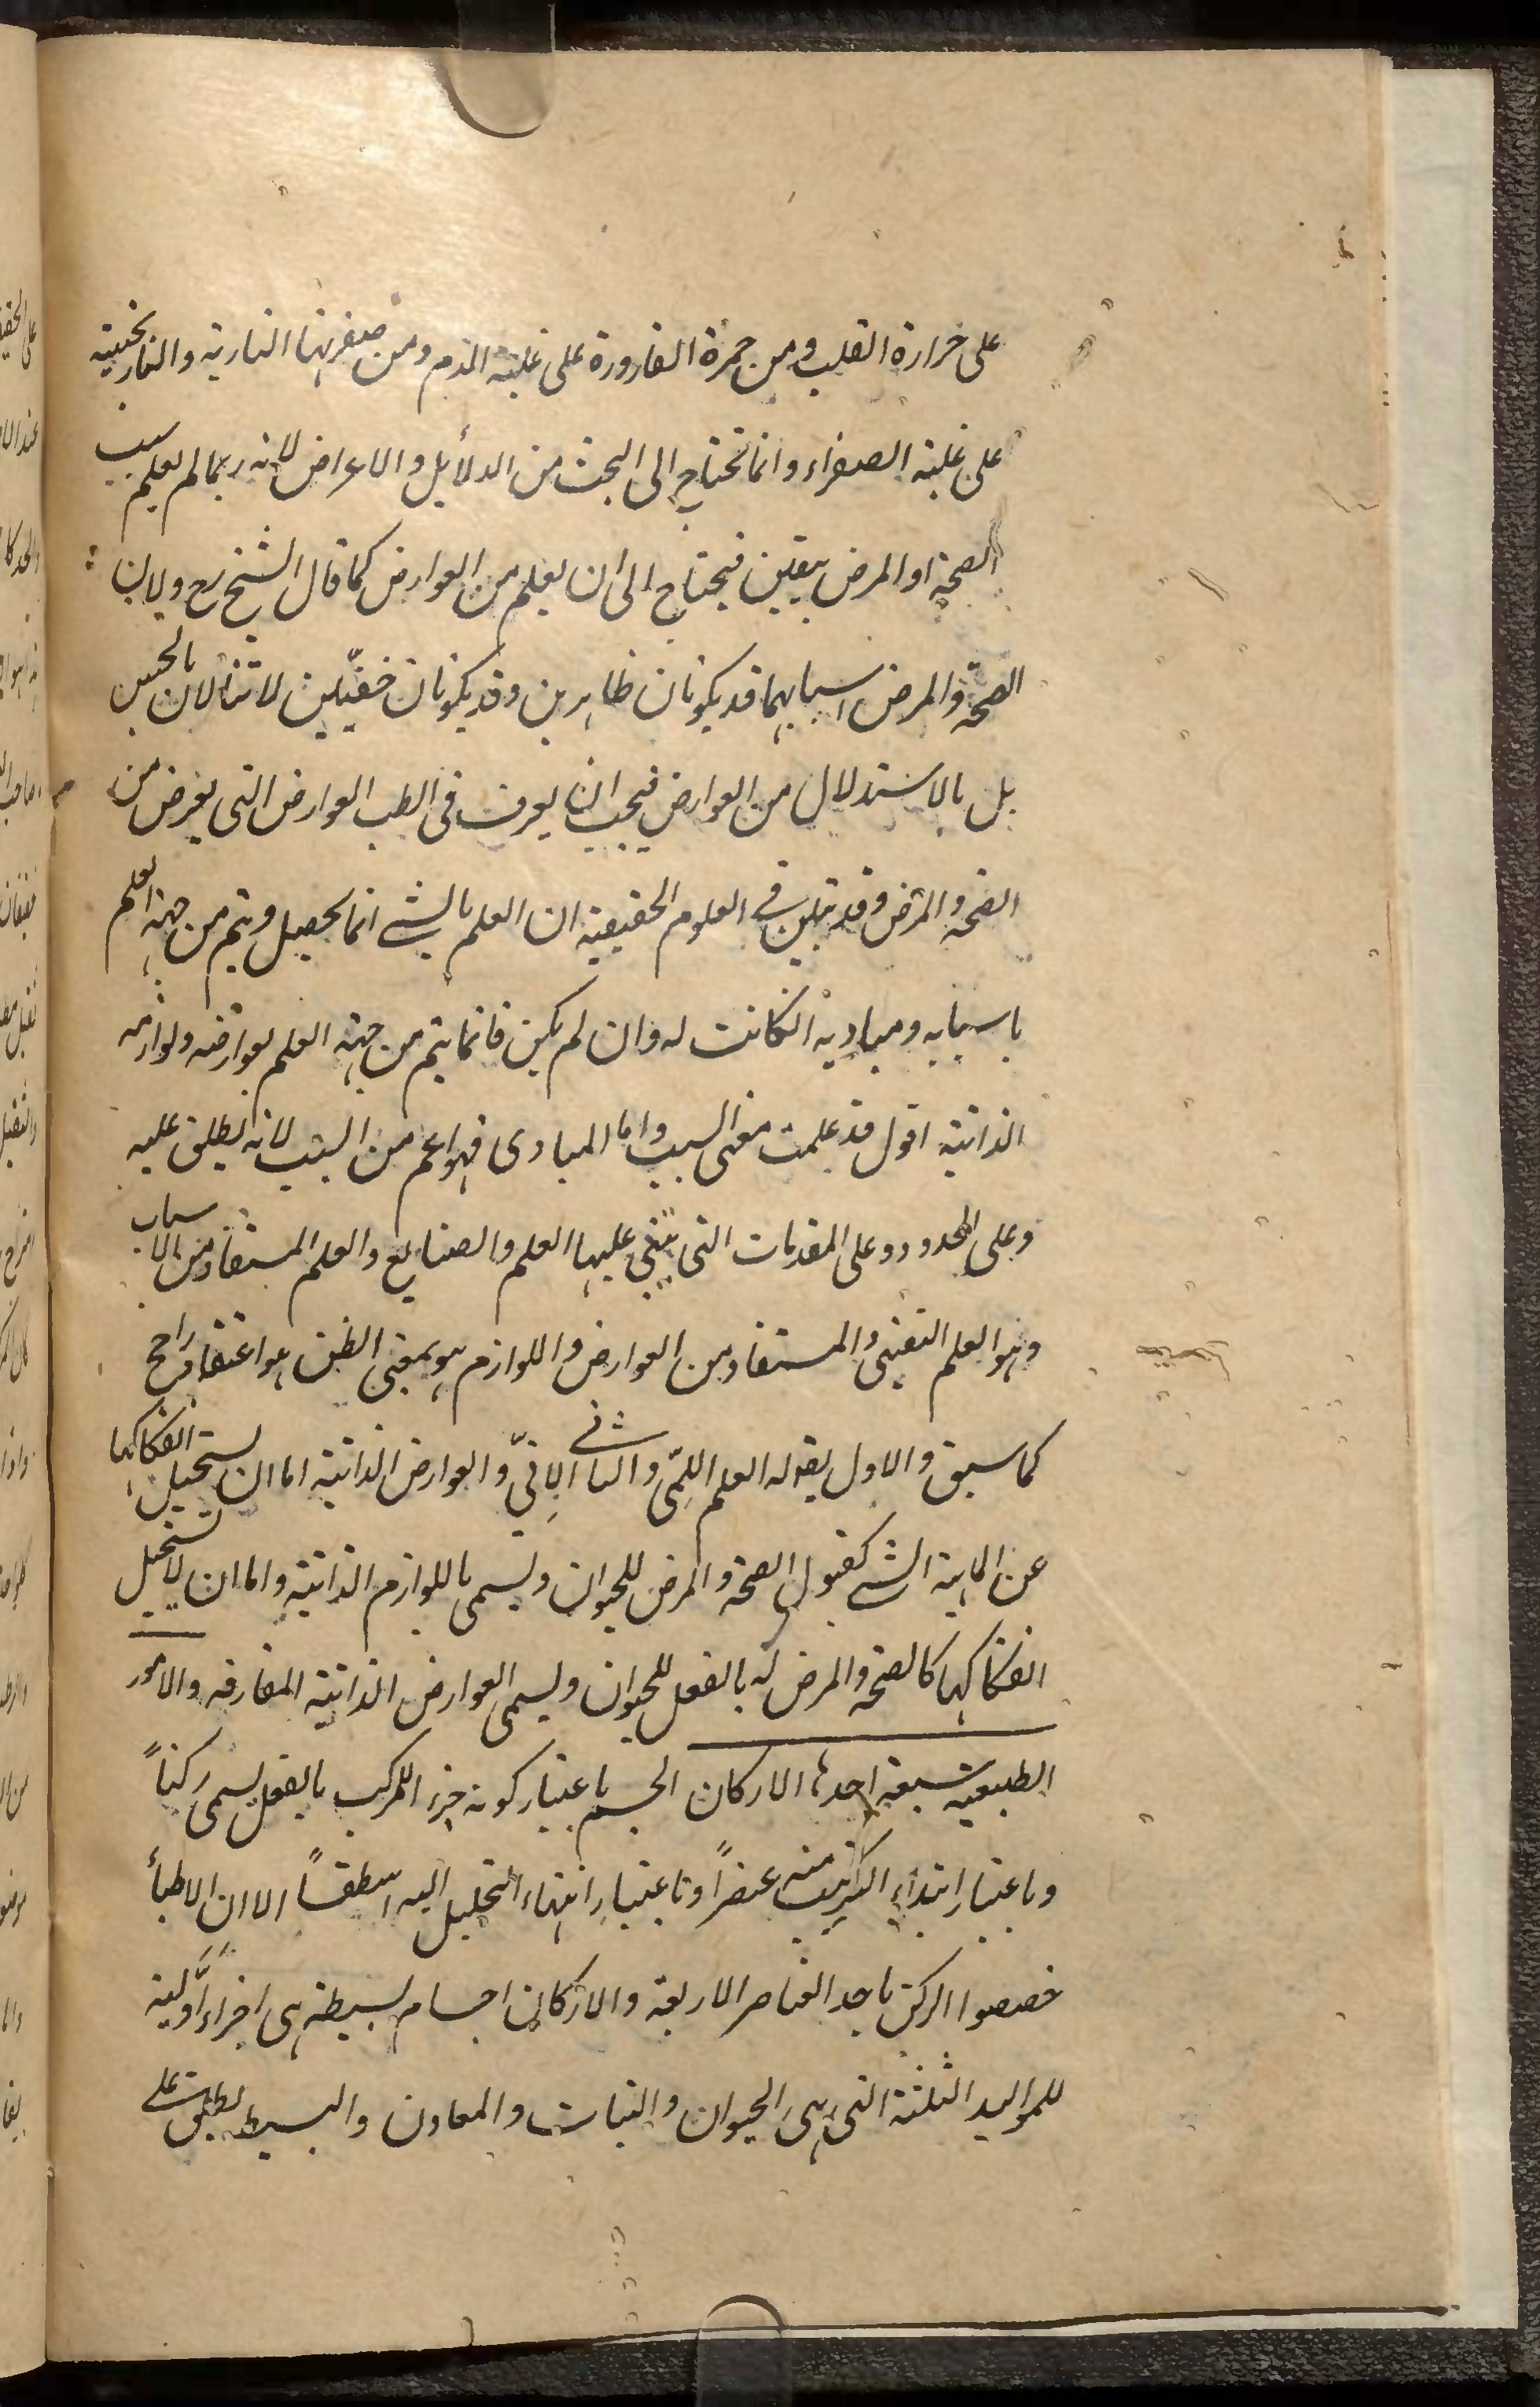 على حرارة القلب ومن حمرة القارورة على غلبة الدم ومن صفرتها النارية والنارنجية
على غلبة الصفراء وانما تحتاج الى البحث من الدلائل والاعراض لانه ربما لم يعلم سبب
الصحة او المرض بيقين فيحتاج الى ان يعلم من العوارض كما قال الشيخ رح ولان
الصحة والمرض اسبابهما قد يكونان ظاهرين وقد يكونان خفيين لا تنالان بالحس
بل بالاستدلال من العوارض فيجب ان يعرف فى الطب العوارض التى يعرض من
الصحة والمرض وقد تبين فى العلوم الحقيقية ان العلم بالشئ انما يحصل ويتم من جهة العلم
باسبابه ومباديه انكانت له وان لم يكن فانما يتم من جهة العلم بعوارضه ولوازمه
الذاتية اقول قد علمت معنى السبب واما المبادى فهو اعم من السبب لانه يطلق عليه
وعلى الحدود وعلى المقدمات التى يبتنى عليها العلم والصنايع والعلم المستفاد من الاسباب
وهو العلم اليقينى والمستفاد من العوارض واللوازم هو بمعنى الظن هو اعتقاد راجح
كما سبق والاول يقوله العلم اللِمّى والثانى الاِنّى والعوارض الذاتية اما ان يستحيل انفكاكها
عن الماهية الشئ كقبول الصحة والمرض للحيوان ويسمى باللوازم الذاتية واما ان لا يستحيل
انفكاكها كالصحة والمرض له بالفعل للحيوان ويسمى العوارض الذاتية المفارقه والامور
الطبيعية سبعة احدها الاركان الجسم باعتبار كونه جزء المركب بالفعل يسمى ركناً
وباعتبار ابتداء التركيب منه عنصراً وباعتبار انتهاء التحليل اليه اسطقساً الا ان الاطباء
خصصوا الركن باحد العناصر الاربعة والاركان اجسام بسيطة هى اجزاء اوّلية
للمواليد الثلثة التى هى الحيوان والنبات والمعادن والبسيط يطلق على